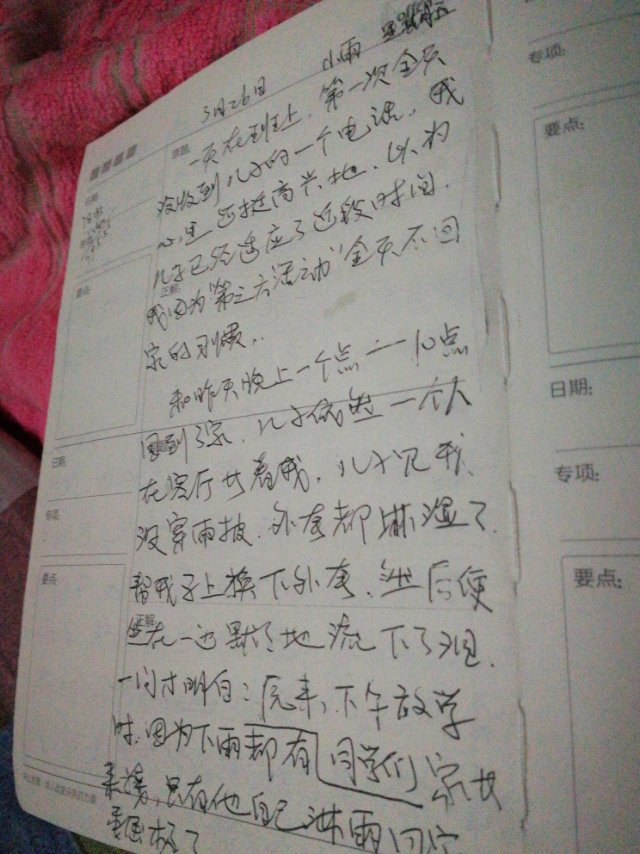 3月26日 小雨 星期五
一天在班上,第一次全天
没收到儿子的一个电话,我
心里还挺高兴地,以为
儿子已经适应了这段时间,
我因为"第三方活动"全天不回
家的习惯..
和昨天晚上一个点——10点
回到了家,儿子依然一个人
在客厅等着我,儿子见我
没穿雨披,外套都淋湿了
帮我马上换下外套,然后便
坐在一边默默地流下了泪,
一问才明白:原来,下午放学
时,因为下雨都有同学们家长
来接,只有他自己淋雨回家
专项:
要点:
日期:
专项:
要点:
日期:
要点:
日期:
专项:
要点:
正解:
正解: